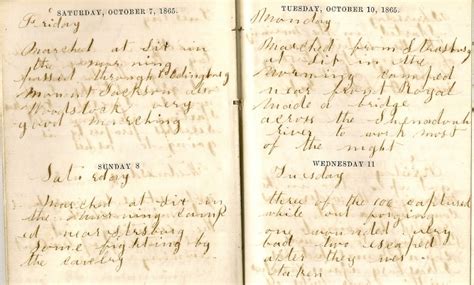 SATURDAY, OCTOBER 7, 1865.
Friday
Marched at Six in
the morning
passed through Edingburg
Mount Jackson an
Woodstock very
good marching
SUNDAY 8
Saturday
Marched at Six in
the morning camp
ed near
some fighting by
the
TUESDAY, OCTOBER 10, 1865.
Monday
Marched from Strasburg
at Six in the
morning camped
near front Royal
made a bridge
across the Shenandoah
River to work most
of the night
WEDNESDAY 11
Tuesday
three of the 106 captured
while out forging
one wounded very
bad two escaped
after they was
taken